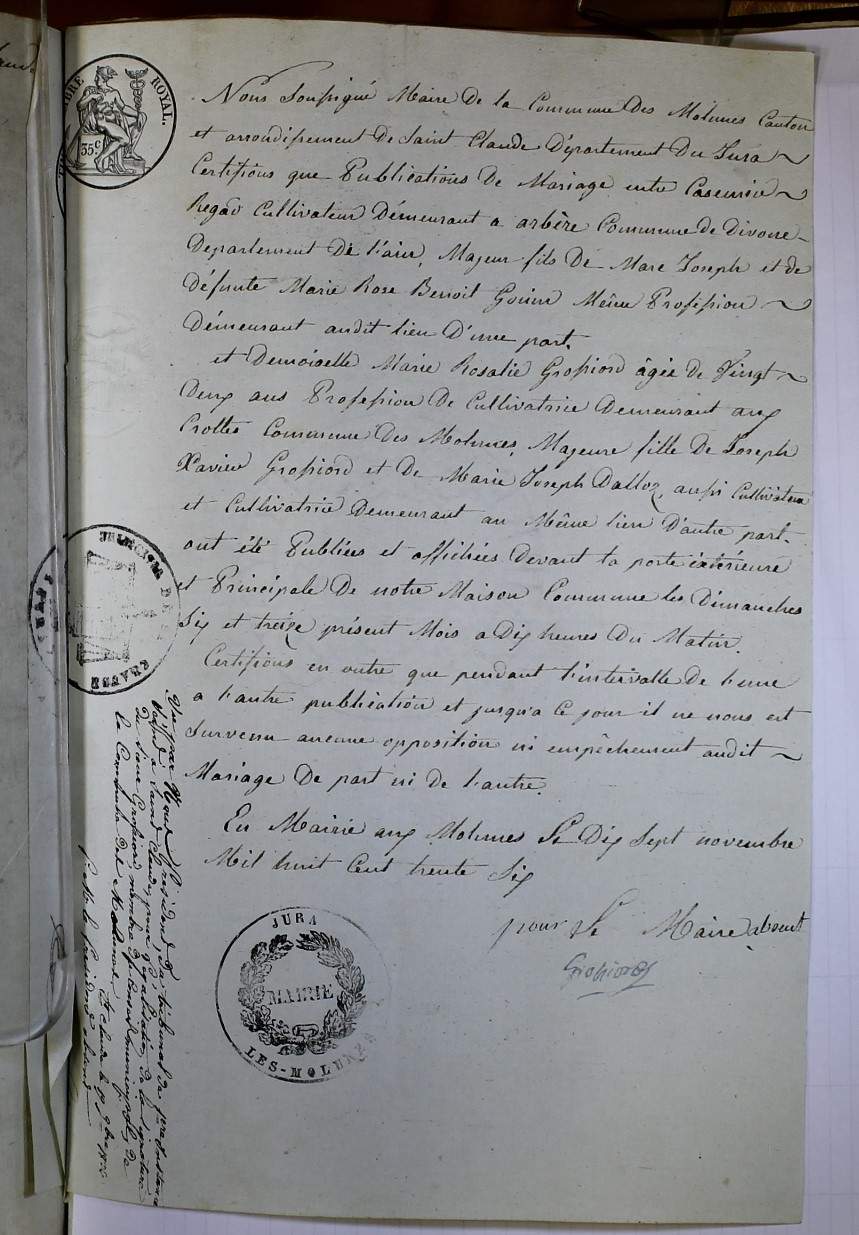 TIMBRE ROYAL.
35.c
Nous Soussigné Maire De la Commune Des Molunes Canton
et arrondissement De Saint Claude Département Du Jura ~
Certifions que Publications De Mariage entre Casemir ~
Regad Cultivateur Démeurant a arbère Commune de Divone
Departement De l'ain, Majeur fils De Marc Joseph et de
défunte Marie Rose Benoit Gonin Même Profession ~
Démeurant audit lieu D'une part.
et Demoiselle Marie Rosalie Grossiord âgée de Vingt ~
Deux ans Profession De Cultivatrice Demeurant aux
Crottes Commune Des Molunes, Majeure fille De Joseph
Xavier Grossiord et De Marie Joseph Dalloz, aussi Cultivateur
et Cultivatrice Demeurant au Même lieu D'autre part.
ont été Publiées et affichées Devant la porte extérieure
et Principale De notre Maison Commune les Dimanches
Six et treize présent Mois a Dix heures Du Matin.
Certifions en outre que pendant l'intervalle De l'une
a l'autre publication et jusqu'a ce jour il ne nous est
Survenu aucune opposition ni empêchement audit ~
Mariage De part ni de l'autre.
En Mairie aux Molunes Le Dix Sept novembre
Mil huit Cent trente Six
pour Le Maire absent
Grossiord
JURA
MAIRIE
LES-MOLUNES
Vu par Nous Président du tribunal de 1ère instance
séant a Saint Claude pour légalisation de la signature
du sieur Grossiord, membre du Conseil municipal de
la Commune des Molunes.